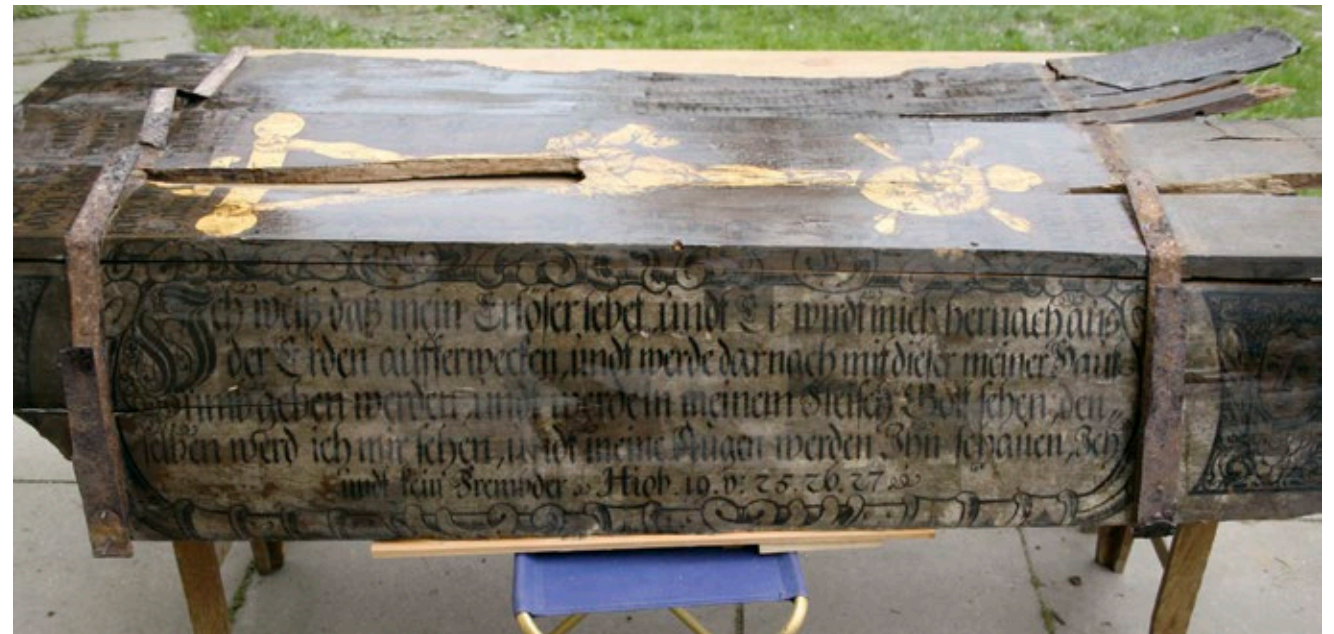 Ich weiß daß mein Erlöser lebet, undt Er wirdt mich hernach aus
der Erden aufferwecken, undt werde darnach mit dieser meiner Haut
umbgeben werden, undt werde in meinem Fleisch Gott sehen, den„
selben werd ich mir sehen, undt meine Augen werden Ihn schauen, Ich
undt kein Frembder Hiob. 19. v: 25. 26. 27.